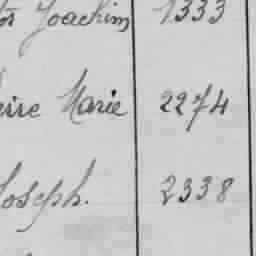 Joachim 1333
Marie 2274
Joseph. 2338